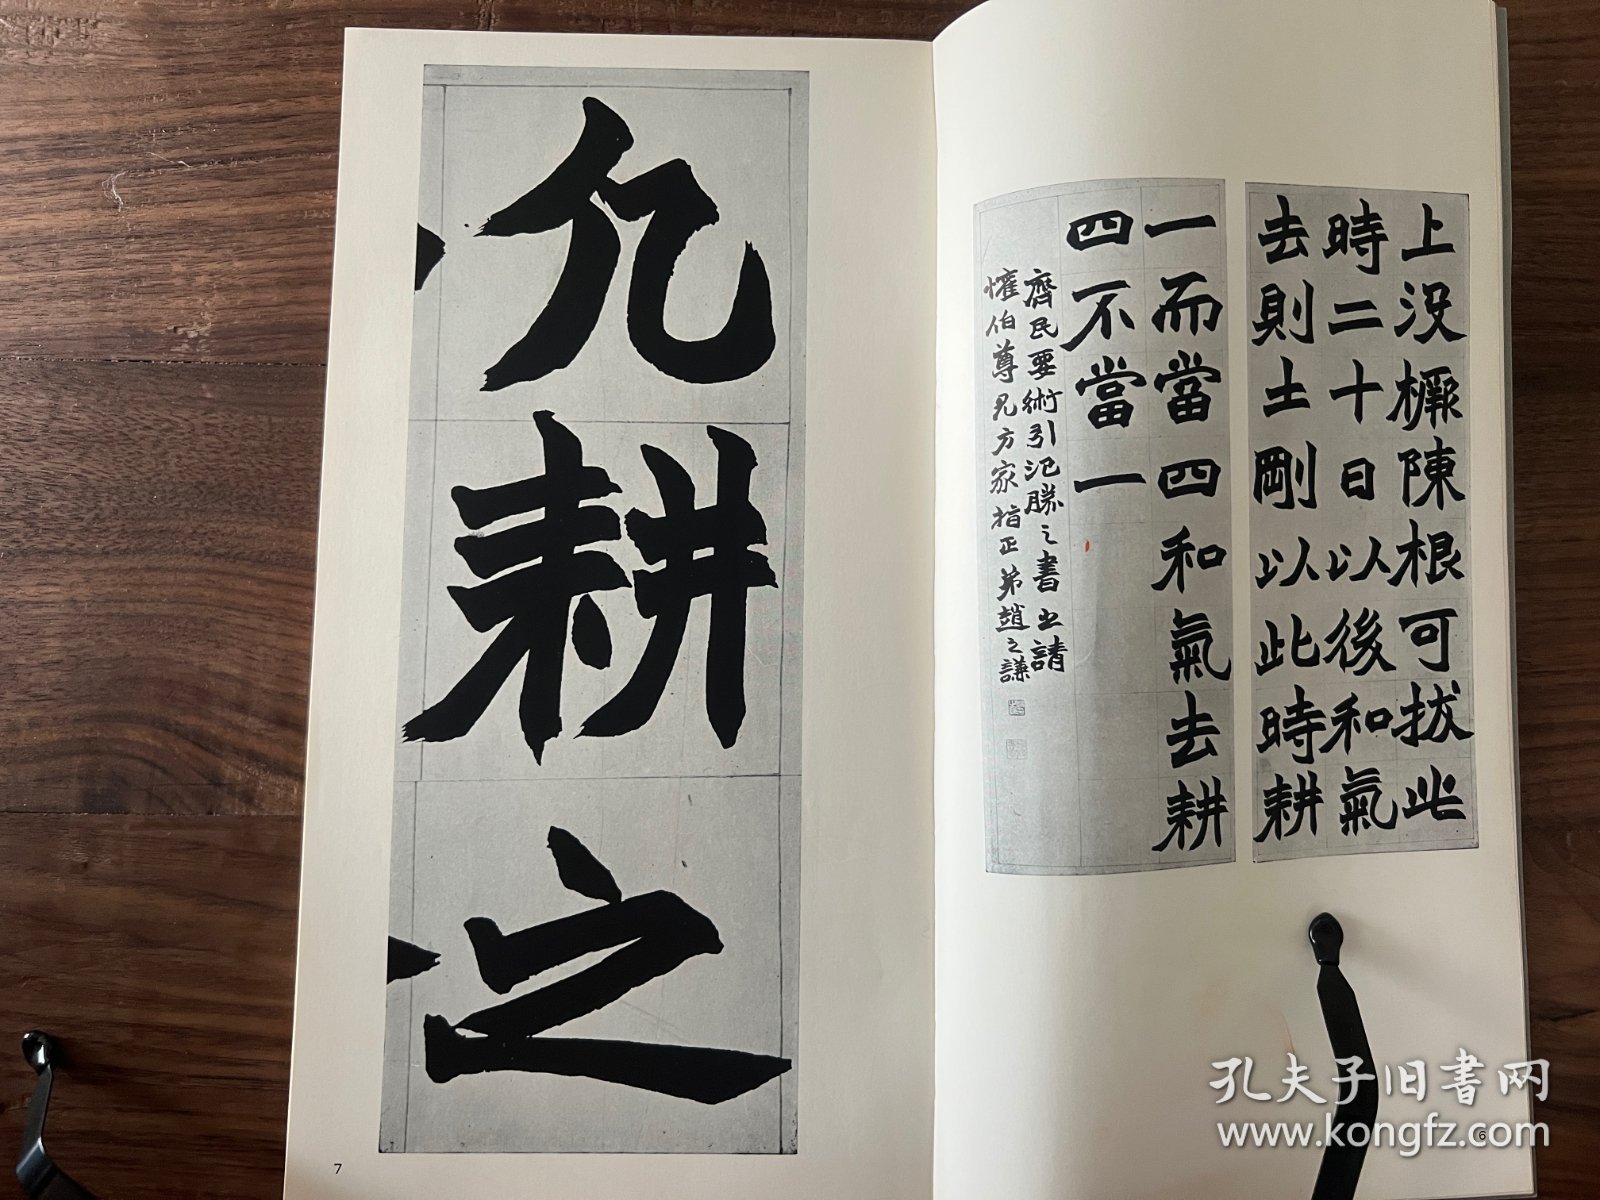 上没橛陳根可拔此
時二十日以後和氣
去則土剛以此時耕
一而當四和氣去耕
四不當一
齊民要術引氾勝之書請
懽伯尊兄方家指正弟趙之謙
6
凡耕之
7
孔夫子旧書网
www.kongfz.com